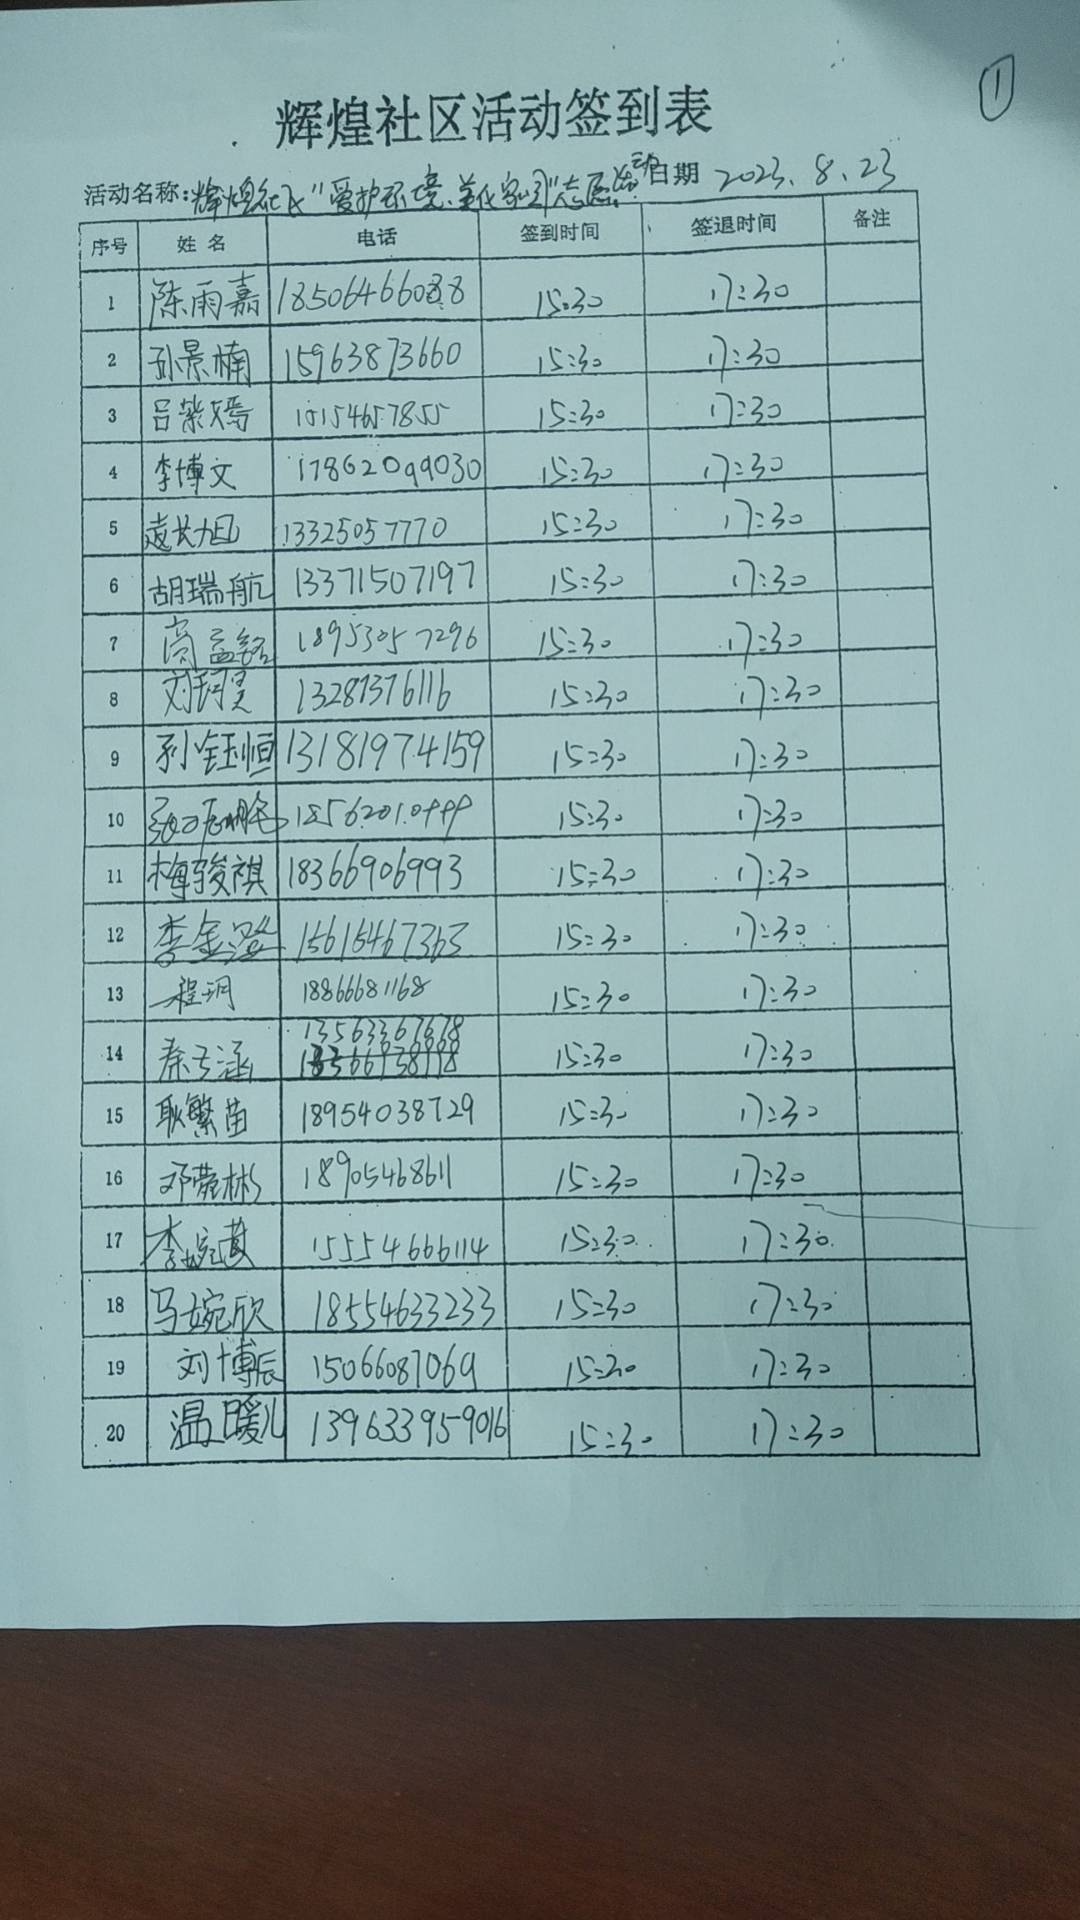 ①
辉煌社区活动签到表
活动名称:辉煌社区"爱护环境、美化家园"志愿活动 日期 2023.8.23
序号 姓名 电话 签到时间 签退时间 备注
1 陈雨嘉 18506466088 15:30 17:30
2 孙景楠 15963873660 15:30 17:30
3 吕紫嫣 15154657855 15:30 17:30
4 李博文 17862099030 15:30 17:30
5 袁长旭 13325057770 15:30 17:30
6 胡瑞航 13371507197 15:30 17:30
7 高孟铭 18953057296 15:30 17:30
8 刘珂昊 13287376116 15:30 17:30
9 孙钰恒 13181974159 15:30 17:30
10 15:30 17:30
11 梅骏祺 18366906993 15:30 17:30
12 李金澄 15615467363 15:30 17:30
13 程玥 18866681168 15:30 17:30
14 13563367678 15:30 17:30
15 耿繁苗 18954038729 15:30 17:30
16 邓彬 18905468611 15:30 17:30
17 李婉茵 15554666114 15:30 17:30
18 马婉欣 18554633233 15:30 17:30
19 刘博辰 15066087069 15:30 17:30
20 温暖儿 139633959016 15:30 17:30